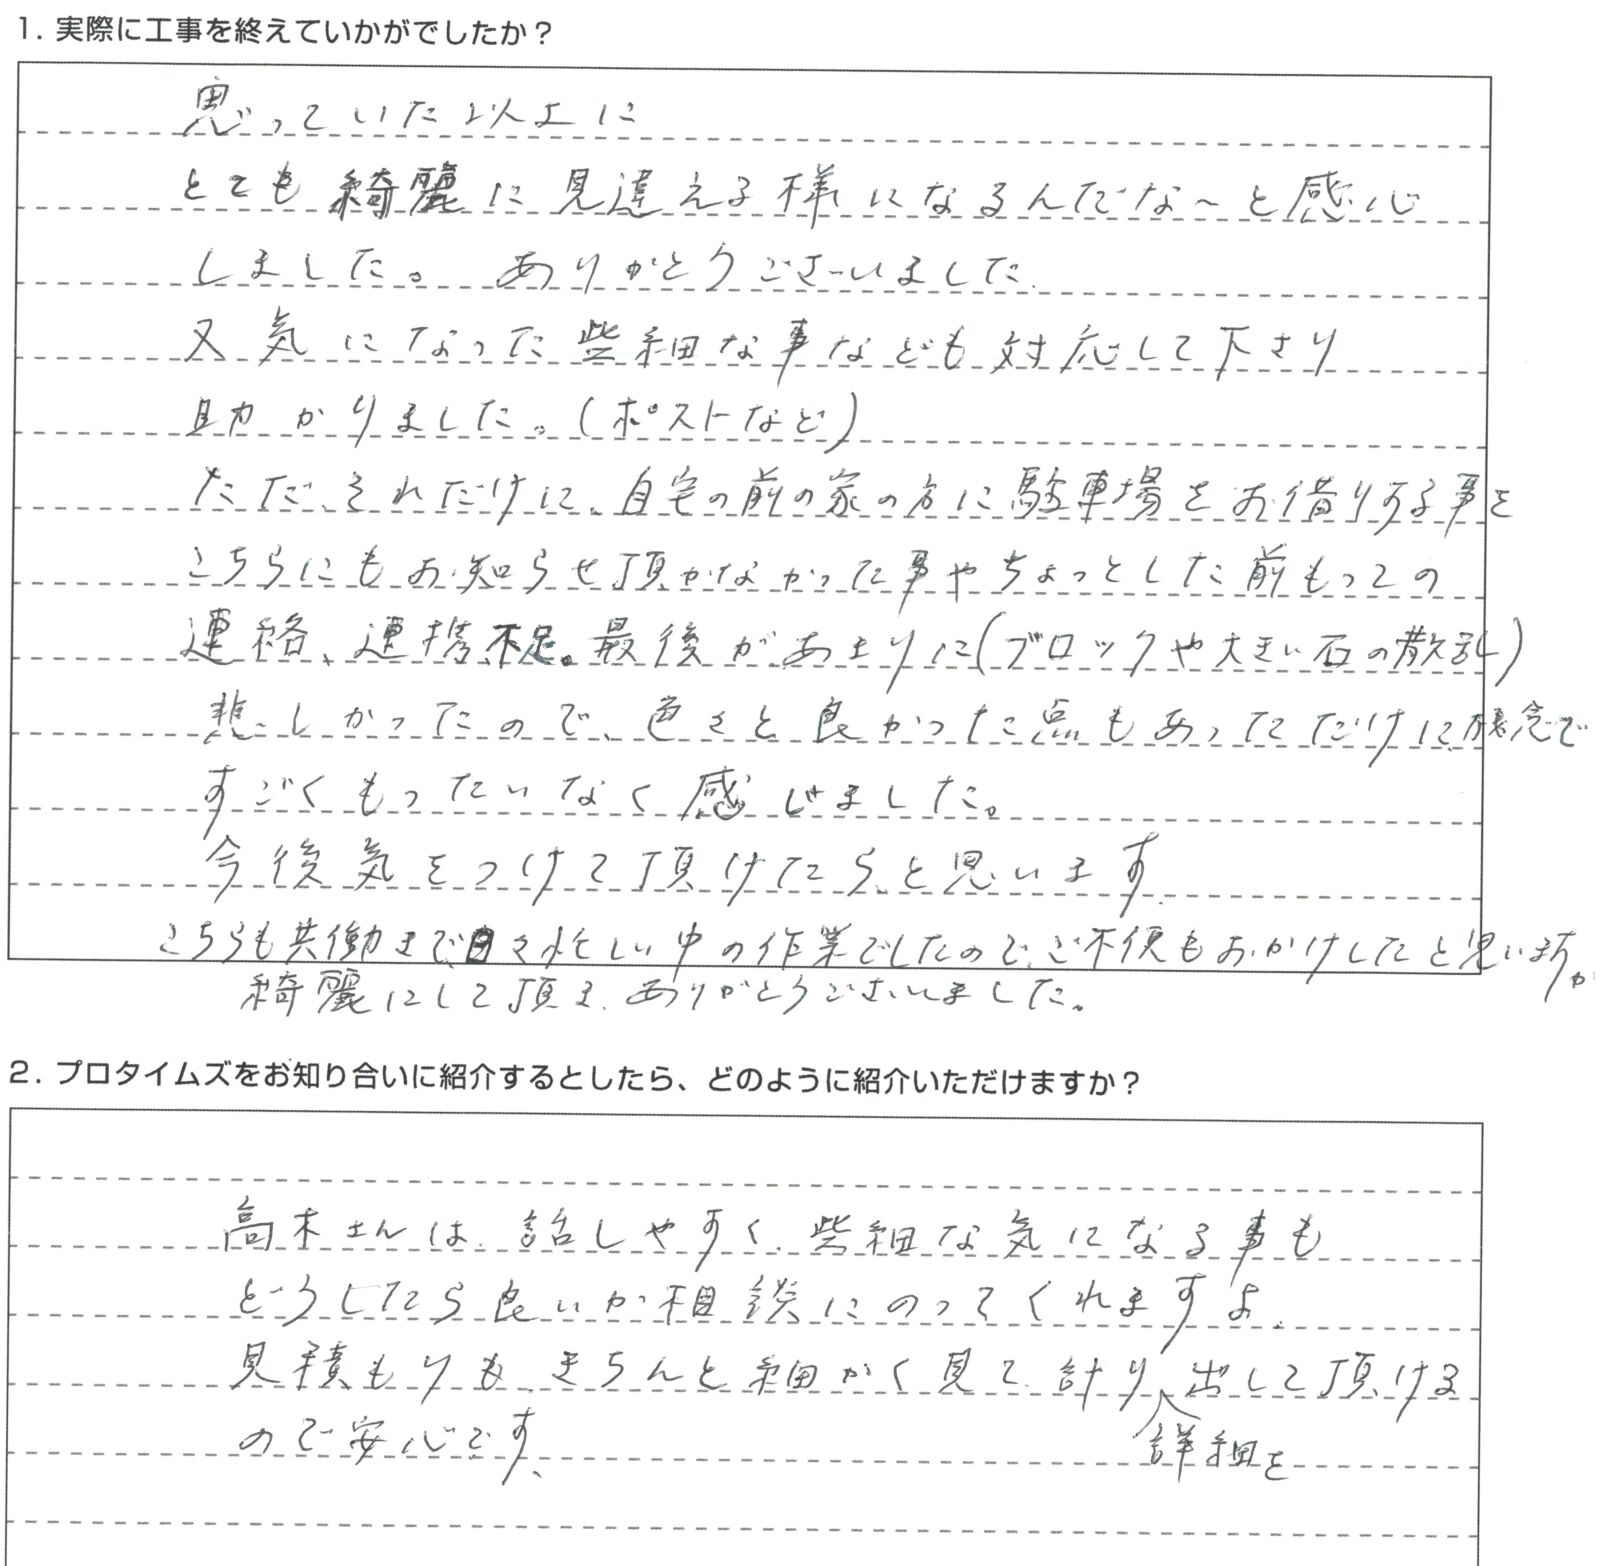 1. 実際に工事を終えていかがでしたか？
思っていた以上に
とても綺麗に見違える様になるんだな〜と感心
しました。ありがとうございました.
又気になった些細な事なども対応して下さり
助かりました。(ポストなど)
ただ、それだけに、自宅の前の家の方に駐車場をお借りする事を
こちらにもお知らせ頂かなかった事やちょっとした前もっての
連絡、連携不足。最後があまりに(ブロックや大きい石の散乱)
悲しかったので、色々と良かった点もあっただけに残念で
すごくもったいなく感じました。
今後気をつけて頂けたら、と思います.
こちらも共働きで、日々忙しい中の作業でしたので、ご不便もおかけしたと思いますが
綺麗にして頂き、ありがとうございました。
2. プロタイムズをお知り合いに紹介するとしたら、どのように紹介いただけますか？
高木さんは、話しやすく、些細な気になる事も
どうしたら良いか相談にのってくれますよ.
見積もりも、きちんと細かく見て、計り 出して頂ける
詳細を
ので安心です、